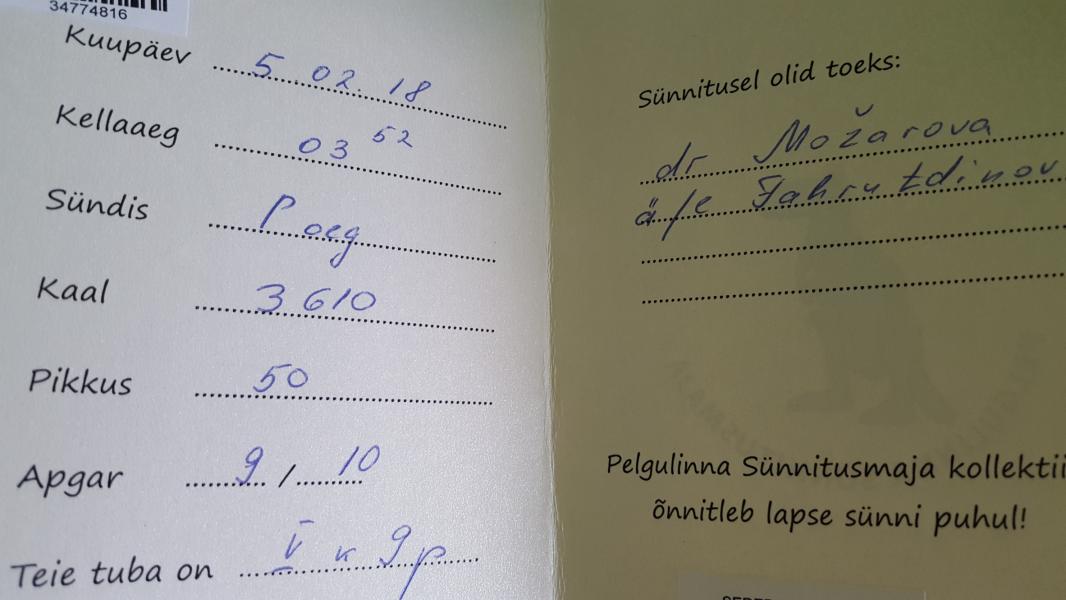 34774816
Kuupäev 5.02.18
Kellaaeg 03 52
Sündis Poeg
Kaal 3610
Pikkus 50
Apgar 9 / 10
Teie tuba on V k 9p
Sünnitusel olid toeks:
dr Možarova
ä/e Fahrutdinov
Pelgulinna Sünnitusmaja kollektii
õnnitleb lapse sünni puhul!